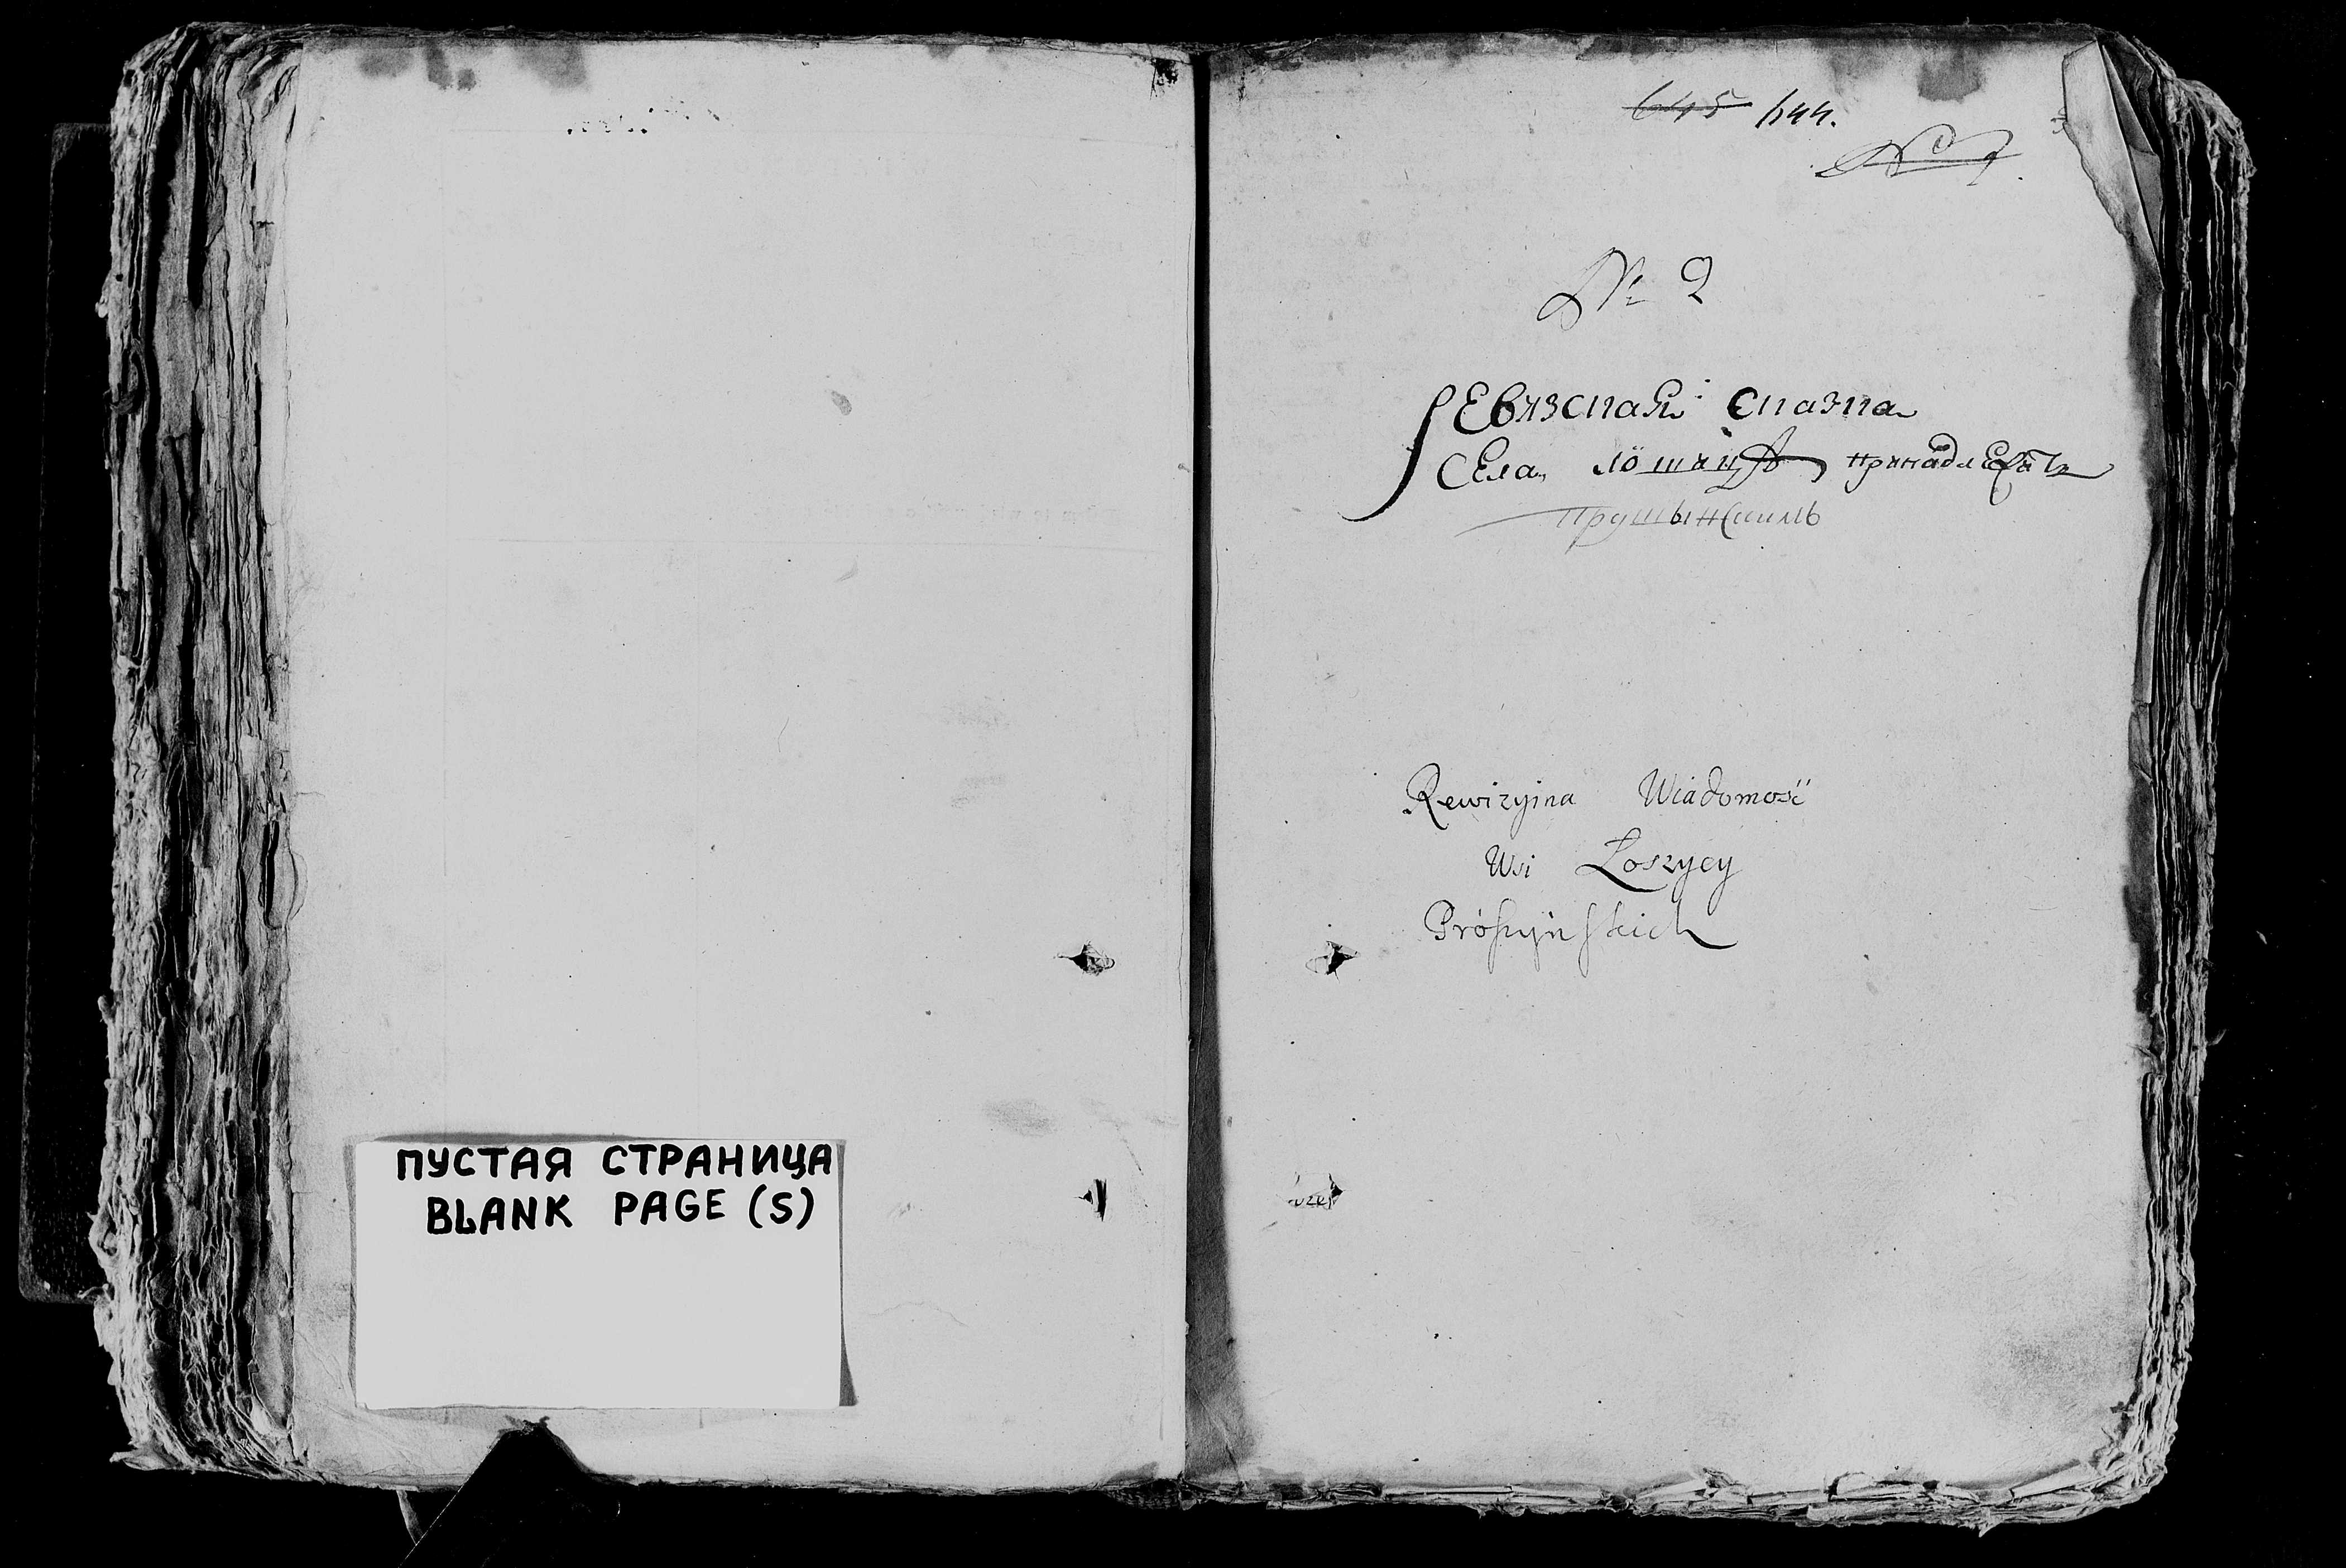 ПУСТАЯ СТРАНИЦА
BLANK PAGE (S)
645 644.
№ 2
Ревизская Сказка
Села Лошицы принадлежитъ
Прушынскимъ
Rewizyina Wiadomość
Wsi Łoszycy
Prószyńskich